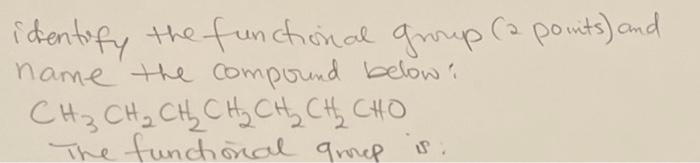 identify the functional group (2 points) and
name the compound below:
CH3 CH2 CH2 CH2 CH2 CH2 CHO
The functional group is: